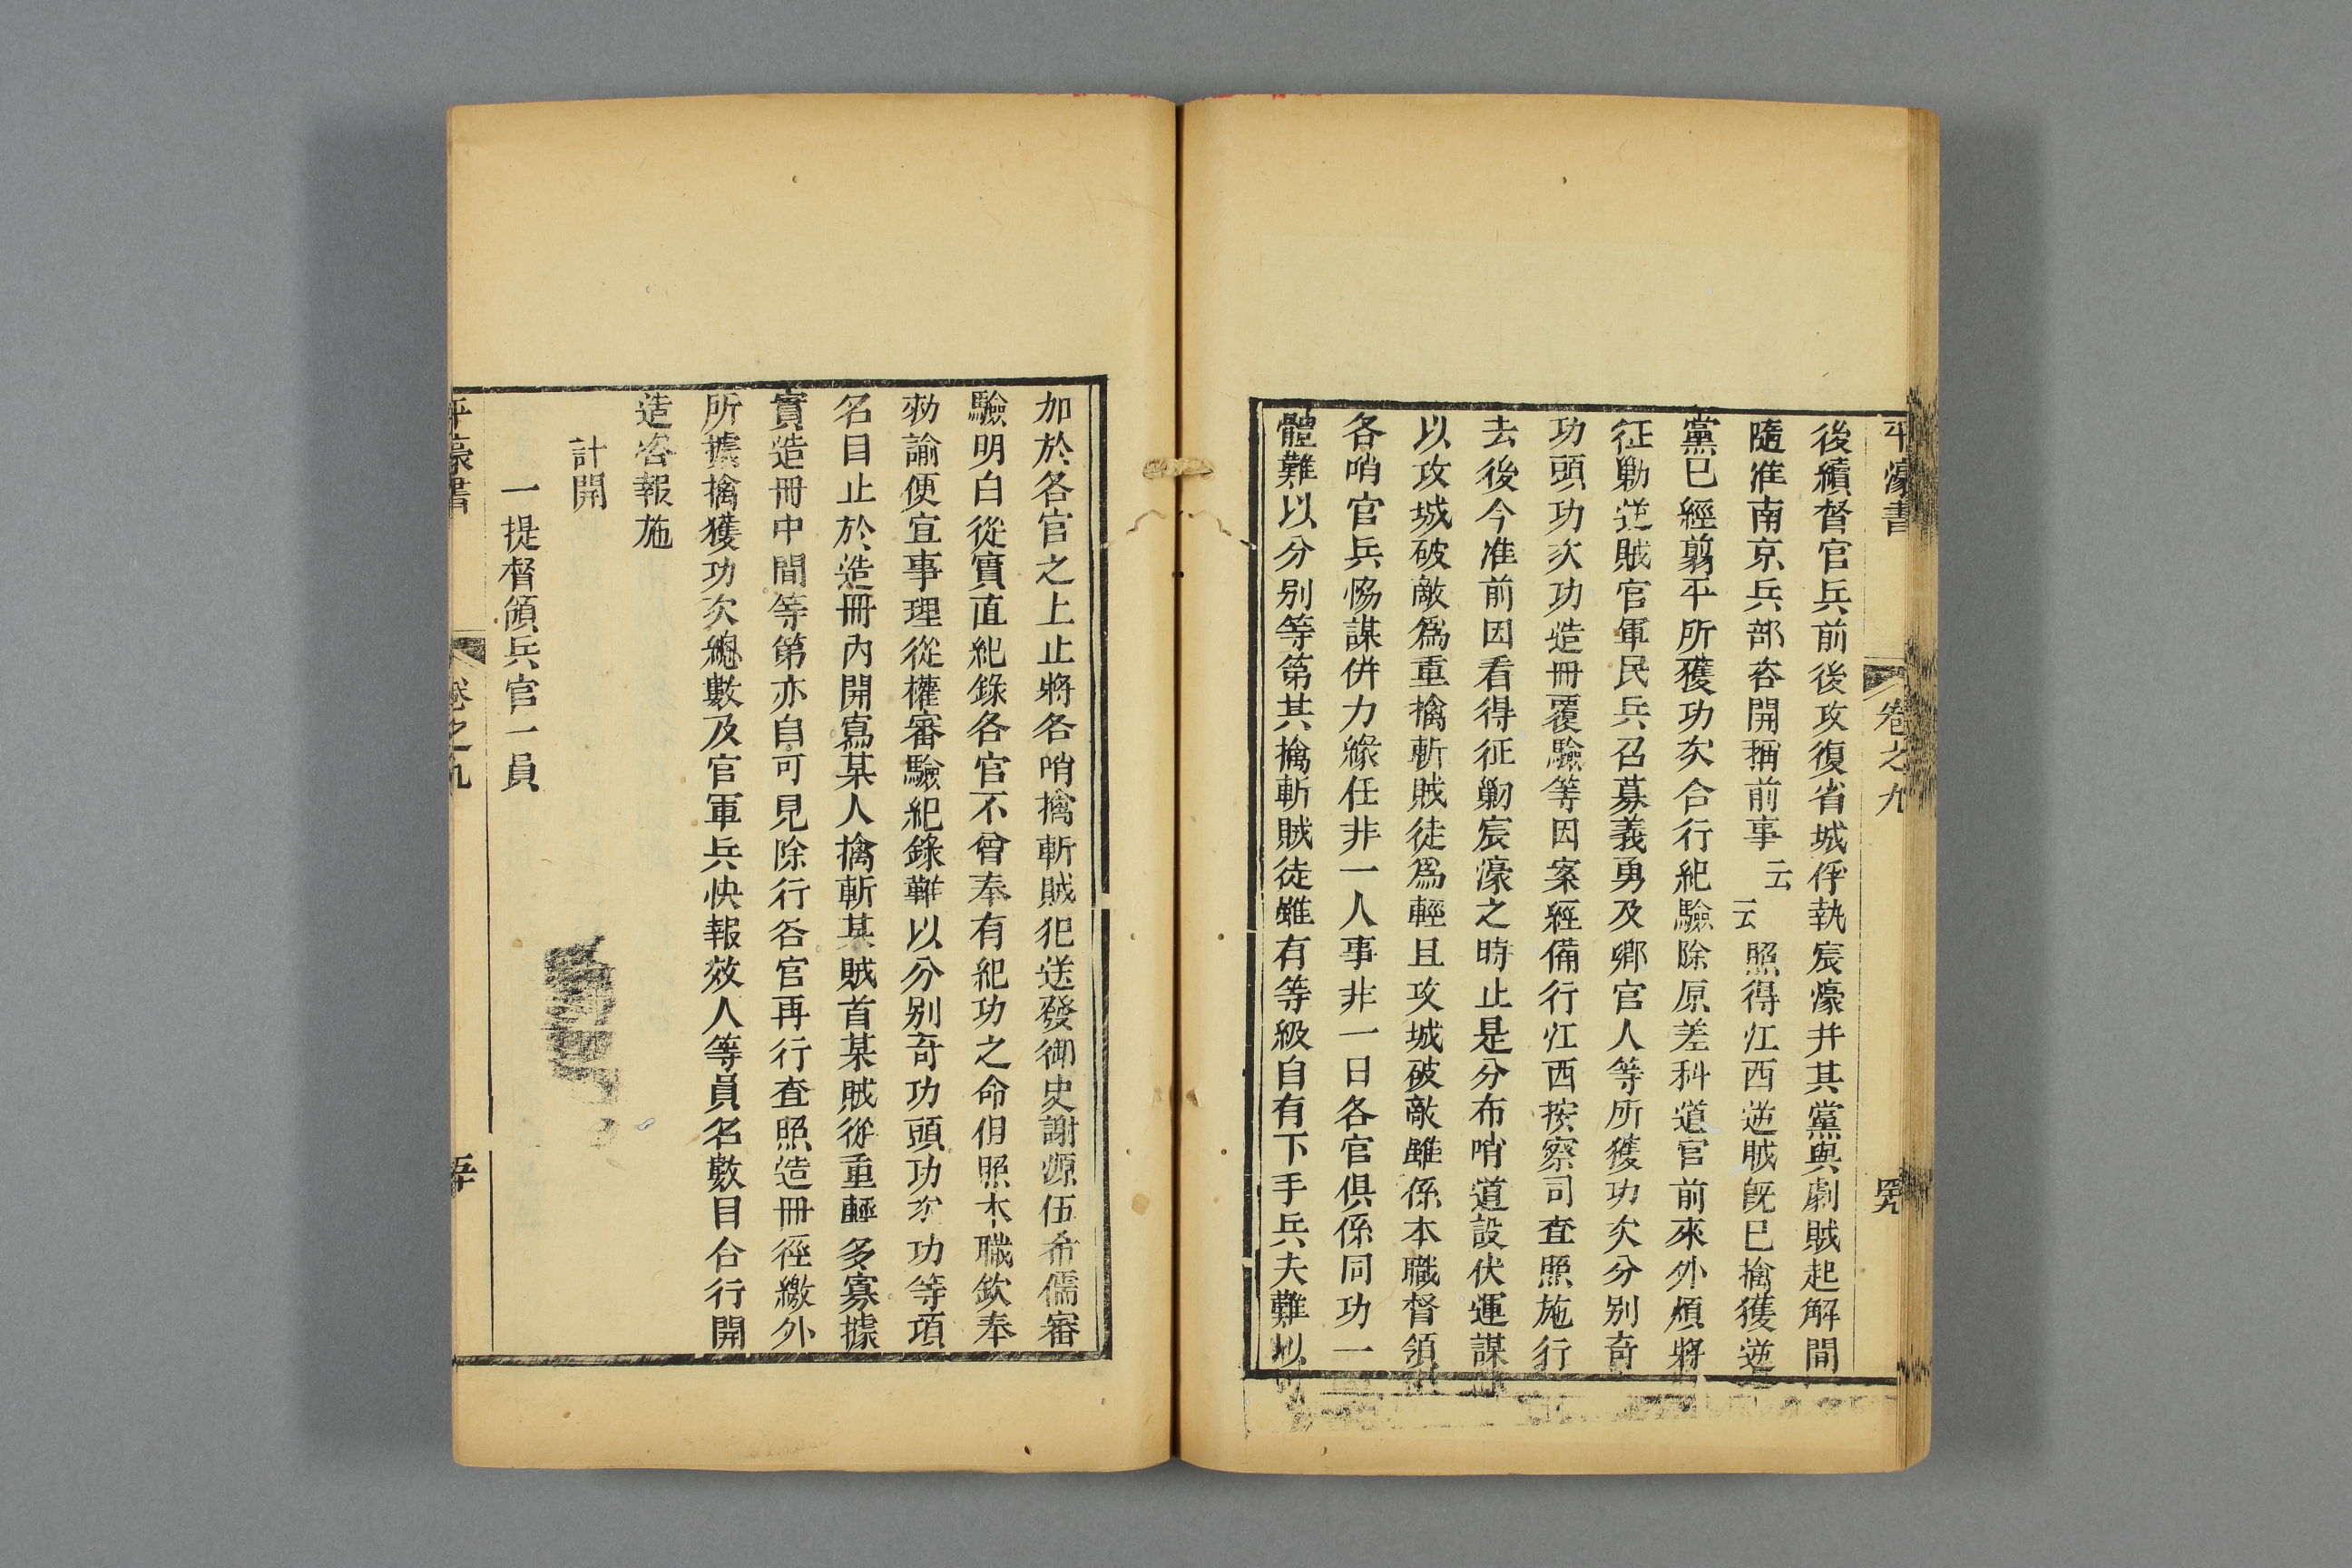 平濠書 卷之九 罕
後續督官兵前後攻復省城俘執宸濠并其黨與劇賊起解間
隨准南京兵部咨開稱前事云云照得江西逆賊旣已擒獲逆
黨已經翦平所獲功次合行紀驗除原差科道官前來外煩將
征勦逆賊官軍民兵召募義勇及鄉官人等所獲功次分別奇
功頭功次功造冊覆驗等因案經備行江西按察司查照施行
去後今准前因看得征勦宸濠之時止是分布哨道設伏運謀
以攻城破敵爲重擒斬賊徒爲輕且攻城破敵雖係本職督領
各哨官兵恊謀併力緣任非一人事非一日各官俱係同功一
體難以分別等第其擒斬賊徒雖有等級自有下手兵夫難以
加於各官之上止將各哨擒斬賊犯送發御史謝源伍希儒審
驗明白從實直紀錄各官不曾奉有紀功之命但照本職欽奉
勑諭便宜事理從權審驗紀錄難以分別奇功頭功次功等項
名目止於造冊內開寫某人擒斬某賊首某賊從重輕多寡據
實造冊中間等第亦自可見除行各官再行查照造冊徑繳外
所據擒獲功次總數及官軍兵快報效人等員名數目合行開
造咨報施
計開
一提督領兵官一員
平濠書 卷之九 五十